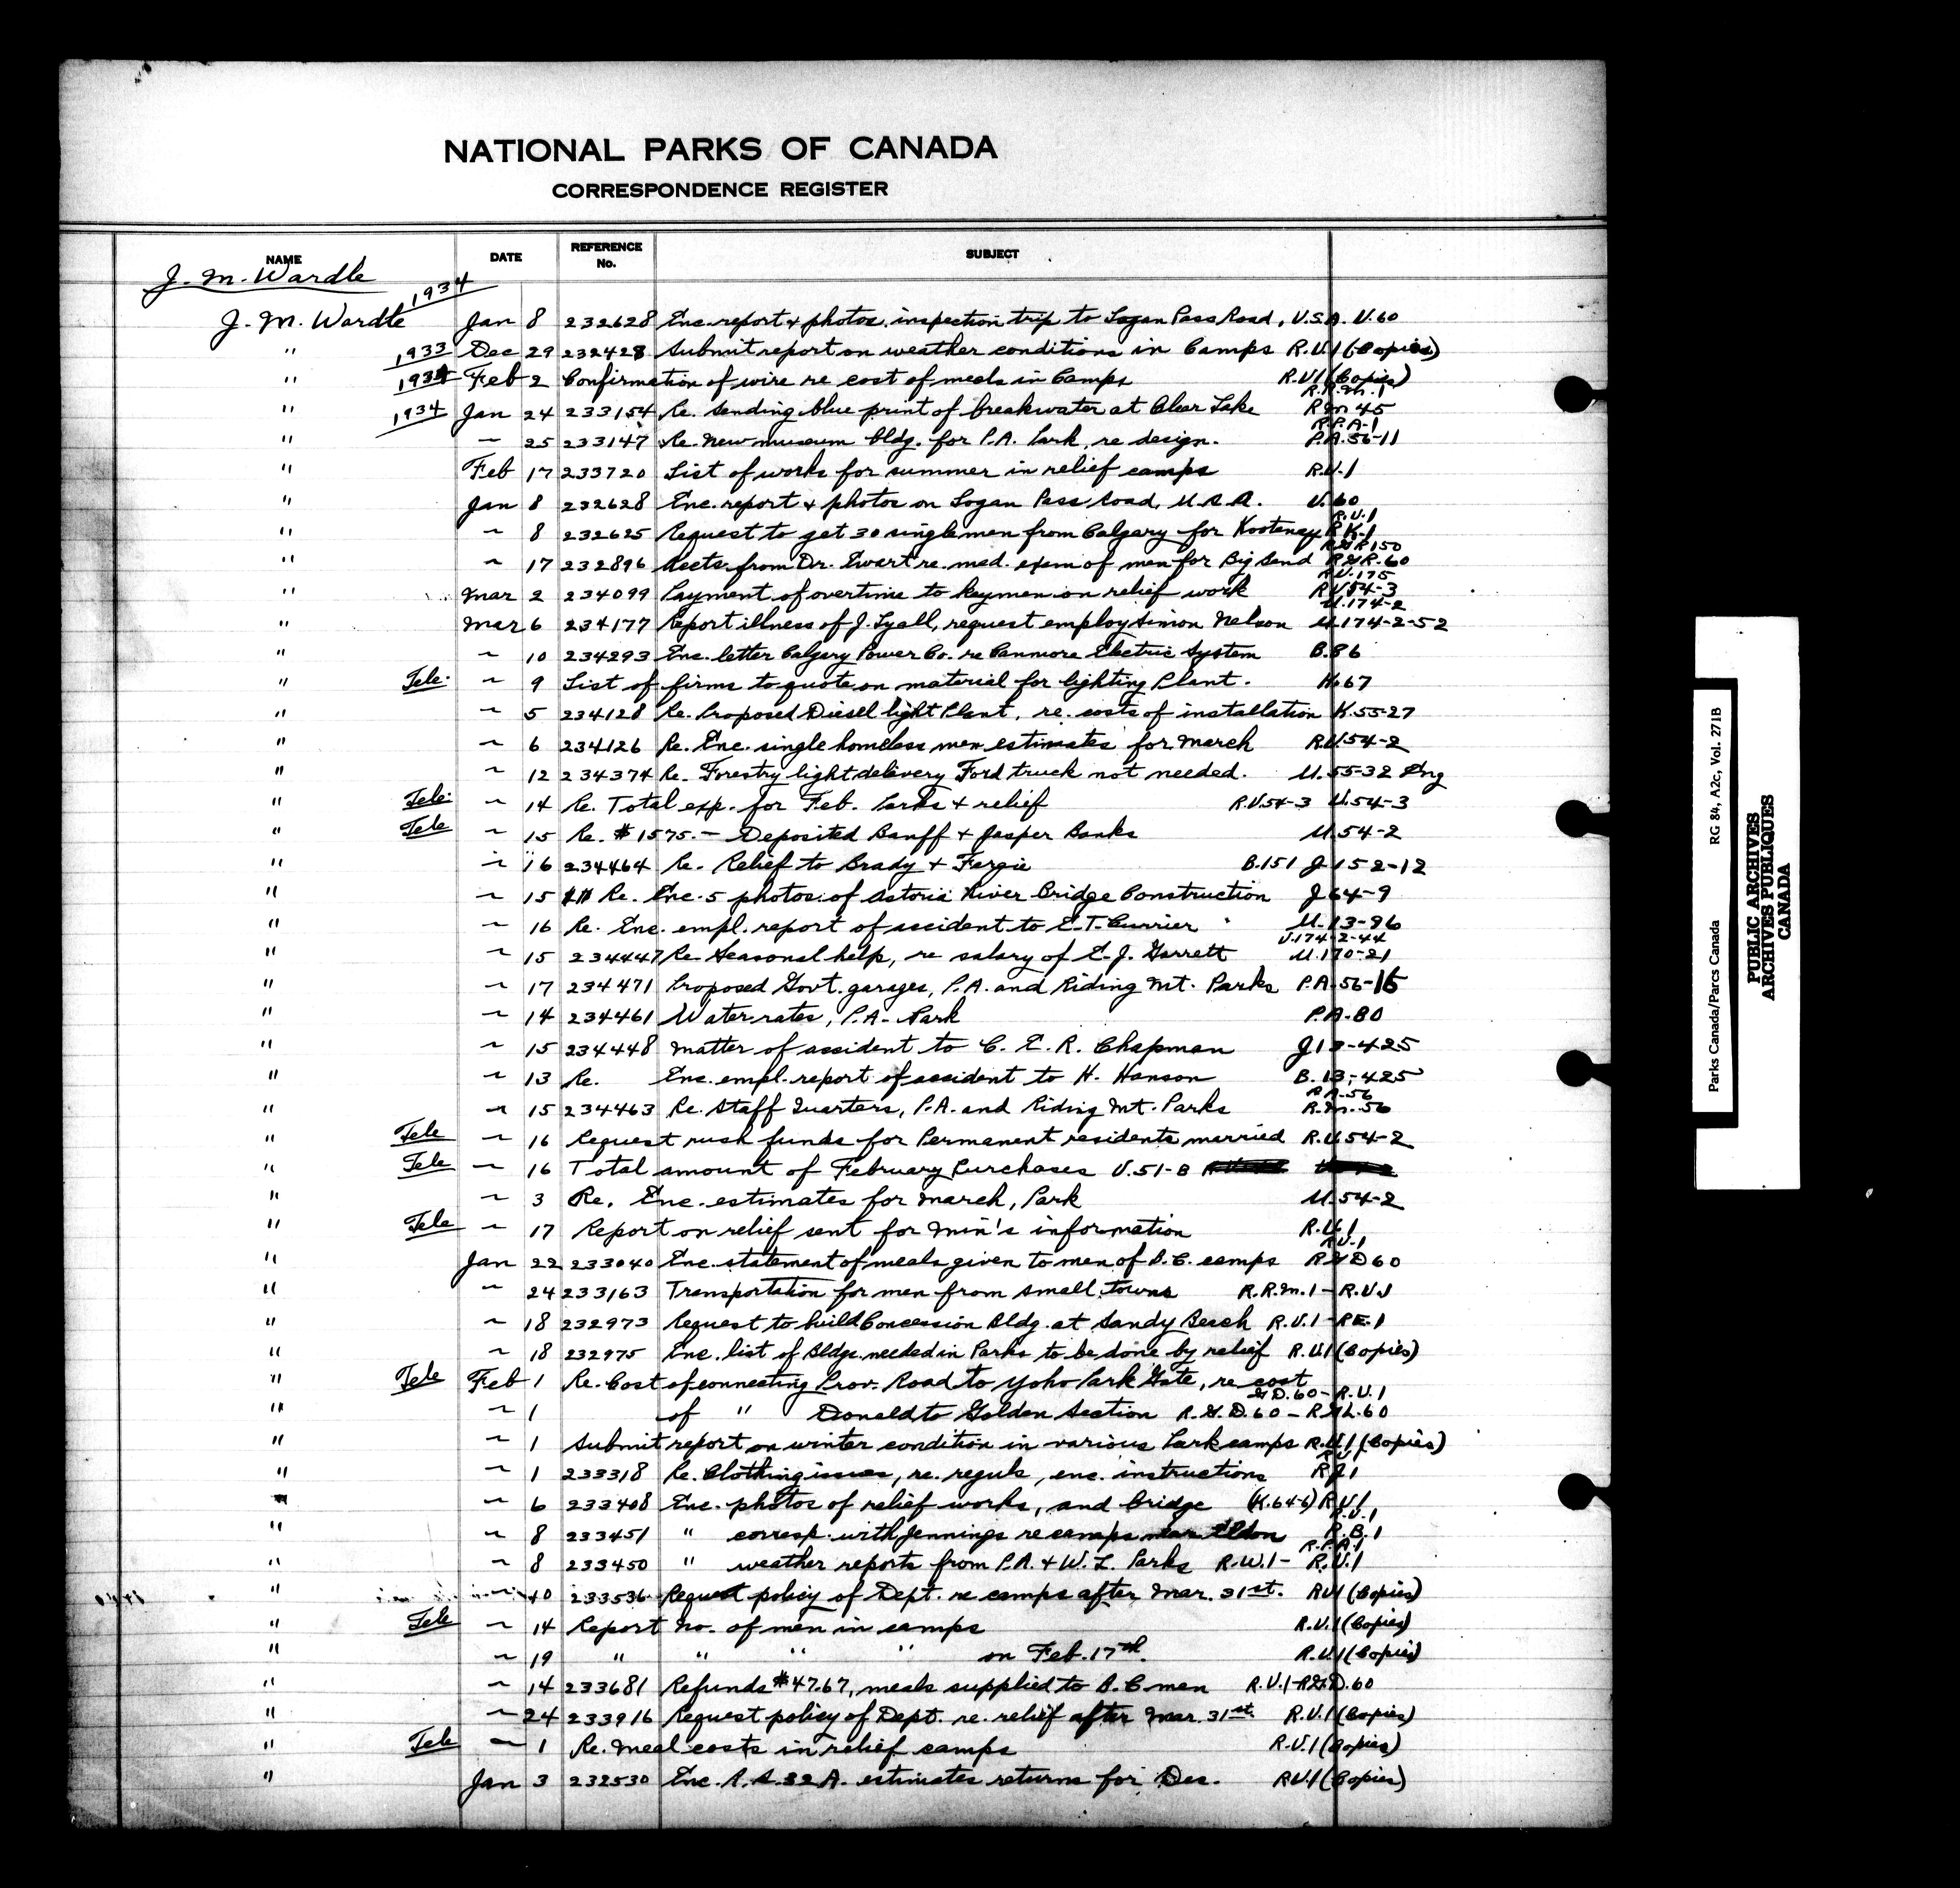 NATIONAL PARKS OF CANADA
CORRESPONDENCE REGISTER
NAME DATE REFERENCE No. SUBJECT
J. M. Wardle
1934
J. M. Wardle Jan 8 232628 Enc. report & photos. inspection trip to Logan Pass Road, U.S.A. U.60
" 1933 Dec 29 232428 Submit report on weather conditions in Camps R.U.1 (Copies)
" 1934 Feb 2 Confirmation of wire re cost of meals in Camps R.U.1 (Copies)
R.R.M.1
" 1934 Jan 24 233154 Re. sending blue print of breakwater at Clear Lake R.M 45
R.P.A-1
" ~ 25 233147 Re. new museum bldg. for P.A. Park, re design. P.A.56-11
" Feb 17 233720 List of works for summer in relief camps R.U.1
" Jan 8 232628 Enc. report & photos on Logan Pass Road, U.S.A. U.60
R.U.1
" ~ 8 232625 Request to get 30 single men from Calgary for Kootenay R.K.1
" ~ 17 232896 Accts. from Dr. Ewart re. med. exam of men for Big Bend
R.U.175
" Mar 2 234099 Payment of overtime to keymen on relief work R.U.54-3
U.174-2
" Mar 6 234177 Report illness of J. Lyall, request employ Simon Nelson U.174-2-52
" ~ 10 234293 Enc. letter Calgary Power Co. re Canmore Electric System B.86
" Tele. ~ 9 List of firms to quote on material for lighting Plant. H.67
" ~ 5 234128 Re. Proposed Diesel light Plant, re. costs of installation K.55-27
" ~ 6 234126 Re. Enc. single homeless men estimates for March R.U.54-2
" ~ 12 234374 Re. Forestry light delivery Ford truck not needed. U.55-32 Eng
" Tele. ~ 14 Re. Total exp. for Feb. Parks & relief R.U.54-3 U.54-3
" Tele ~ 15 Re. $1575.— Deposited Banff & Jasper Banks U.54-2
" ~ 16 234464 Re. Relief to Brady & Fergie B.151 J.152-12
" ~ 15 Re. Enc. 5 photos. of Astoria River Bridge Construction J.64-9
" ~ 16 Re. Enc. empl. report of accident to E.T. Currier U.13-96
U.174-2-44
" ~ 15 234447 Re. Seasonal help, re salary of E.J. Garrett U.170-21
" ~ 17 234471 Proposed Govt. garages, P.A. and Riding Mt. Parks P.A.56-15
" ~ 14 234461 Water rates, P.A. Park P.A.80
" ~ 15 234448 Matter of accident to C. E. R. Chapman J13-425
" ~ 13 Re. Enc. empl. report of accident to H. Hanson B.13-425
P.A.56
" ~ 15 234463 Re. Staff Quarters, P.A. and Riding Mt. Parks R.M.56
" Tele ~ 16 Request rush funds for Permanent residents married R.U.54-2
" Tele ~ 16 Total amount of February Purchases U.51-8
" ~ 3 Re. Enc. estimates for March, Park U.54-2
" Tele ~ 17 Report on relief sent for Min's information R.U.1
R.U.1
" Jan 22 233040 Enc. statement of meals given to men of B.C. camps R.G.D60
" ~ 24 233163 Transportation for men from small towns R.R.M.1 - R.U.1
" ~ 18 232973 Request to build Concession Bldg. at Sandy Beach R.U.1 - R.E.1
" ~ 18 232975 Enc. list of Bldgs. needed in Parks to be done by relief R.U.1 (Copies)
" Tele Feb 1 Re. Cost of connecting Prov. Road to Yoho Park Gate, re cost
G.D.60 - R.U.1
" ~ 1 of " Donald to Golden Section R.G.D.60 - R.G.L.60
" ~ 1 Submit report on winter condition in various Park camps R.U.1 (Copies)
R.U.1
" ~ 1 233318 Re. Clothing issues, re. reguls, enc. instructions R.J1
" ~ 6 233408 Enc. photos of relief works, and Bridge (K.64-6) R.U.1
R.U.1
" ~ 8 233451 " corresp. with Jennings re camps near Eldon R.B.1
R.P.A.1
" ~ 8 233450 " weather reports from P.A. & W.L. Parks R.W.1 - R.U.1
" ~ 10 233536 Request policy of Dept. re camps after Mar. 31st. R.U.1 (Copies)
" Tele ~ 14 Report no. of men in camps R.U.1 (Copies)
" ~ 19 " " " " on Feb. 17th. R.U.1 (Copies)
" ~ 14 233681 Refunds $47.67, meals supplied to B.C men R.U.1-R.G.D.60
" ~ 24 233916 Request policy of Dept. re. relief after Mar. 31st. R.U.1 (Copies)
" Tele ~ 1 Re. Meal costs in relief camps R.U.1 (Copies)
" Jan 3 232530 Enc. R.S.32A. estimates returns for Dec. R.U.1 (Copies)
Parks Canada/Parcs Canada RG 84, A2c, Vol. 271B
PUBLIC ARCHIVES
ARCHIVES PUBLIQUES
CANADA